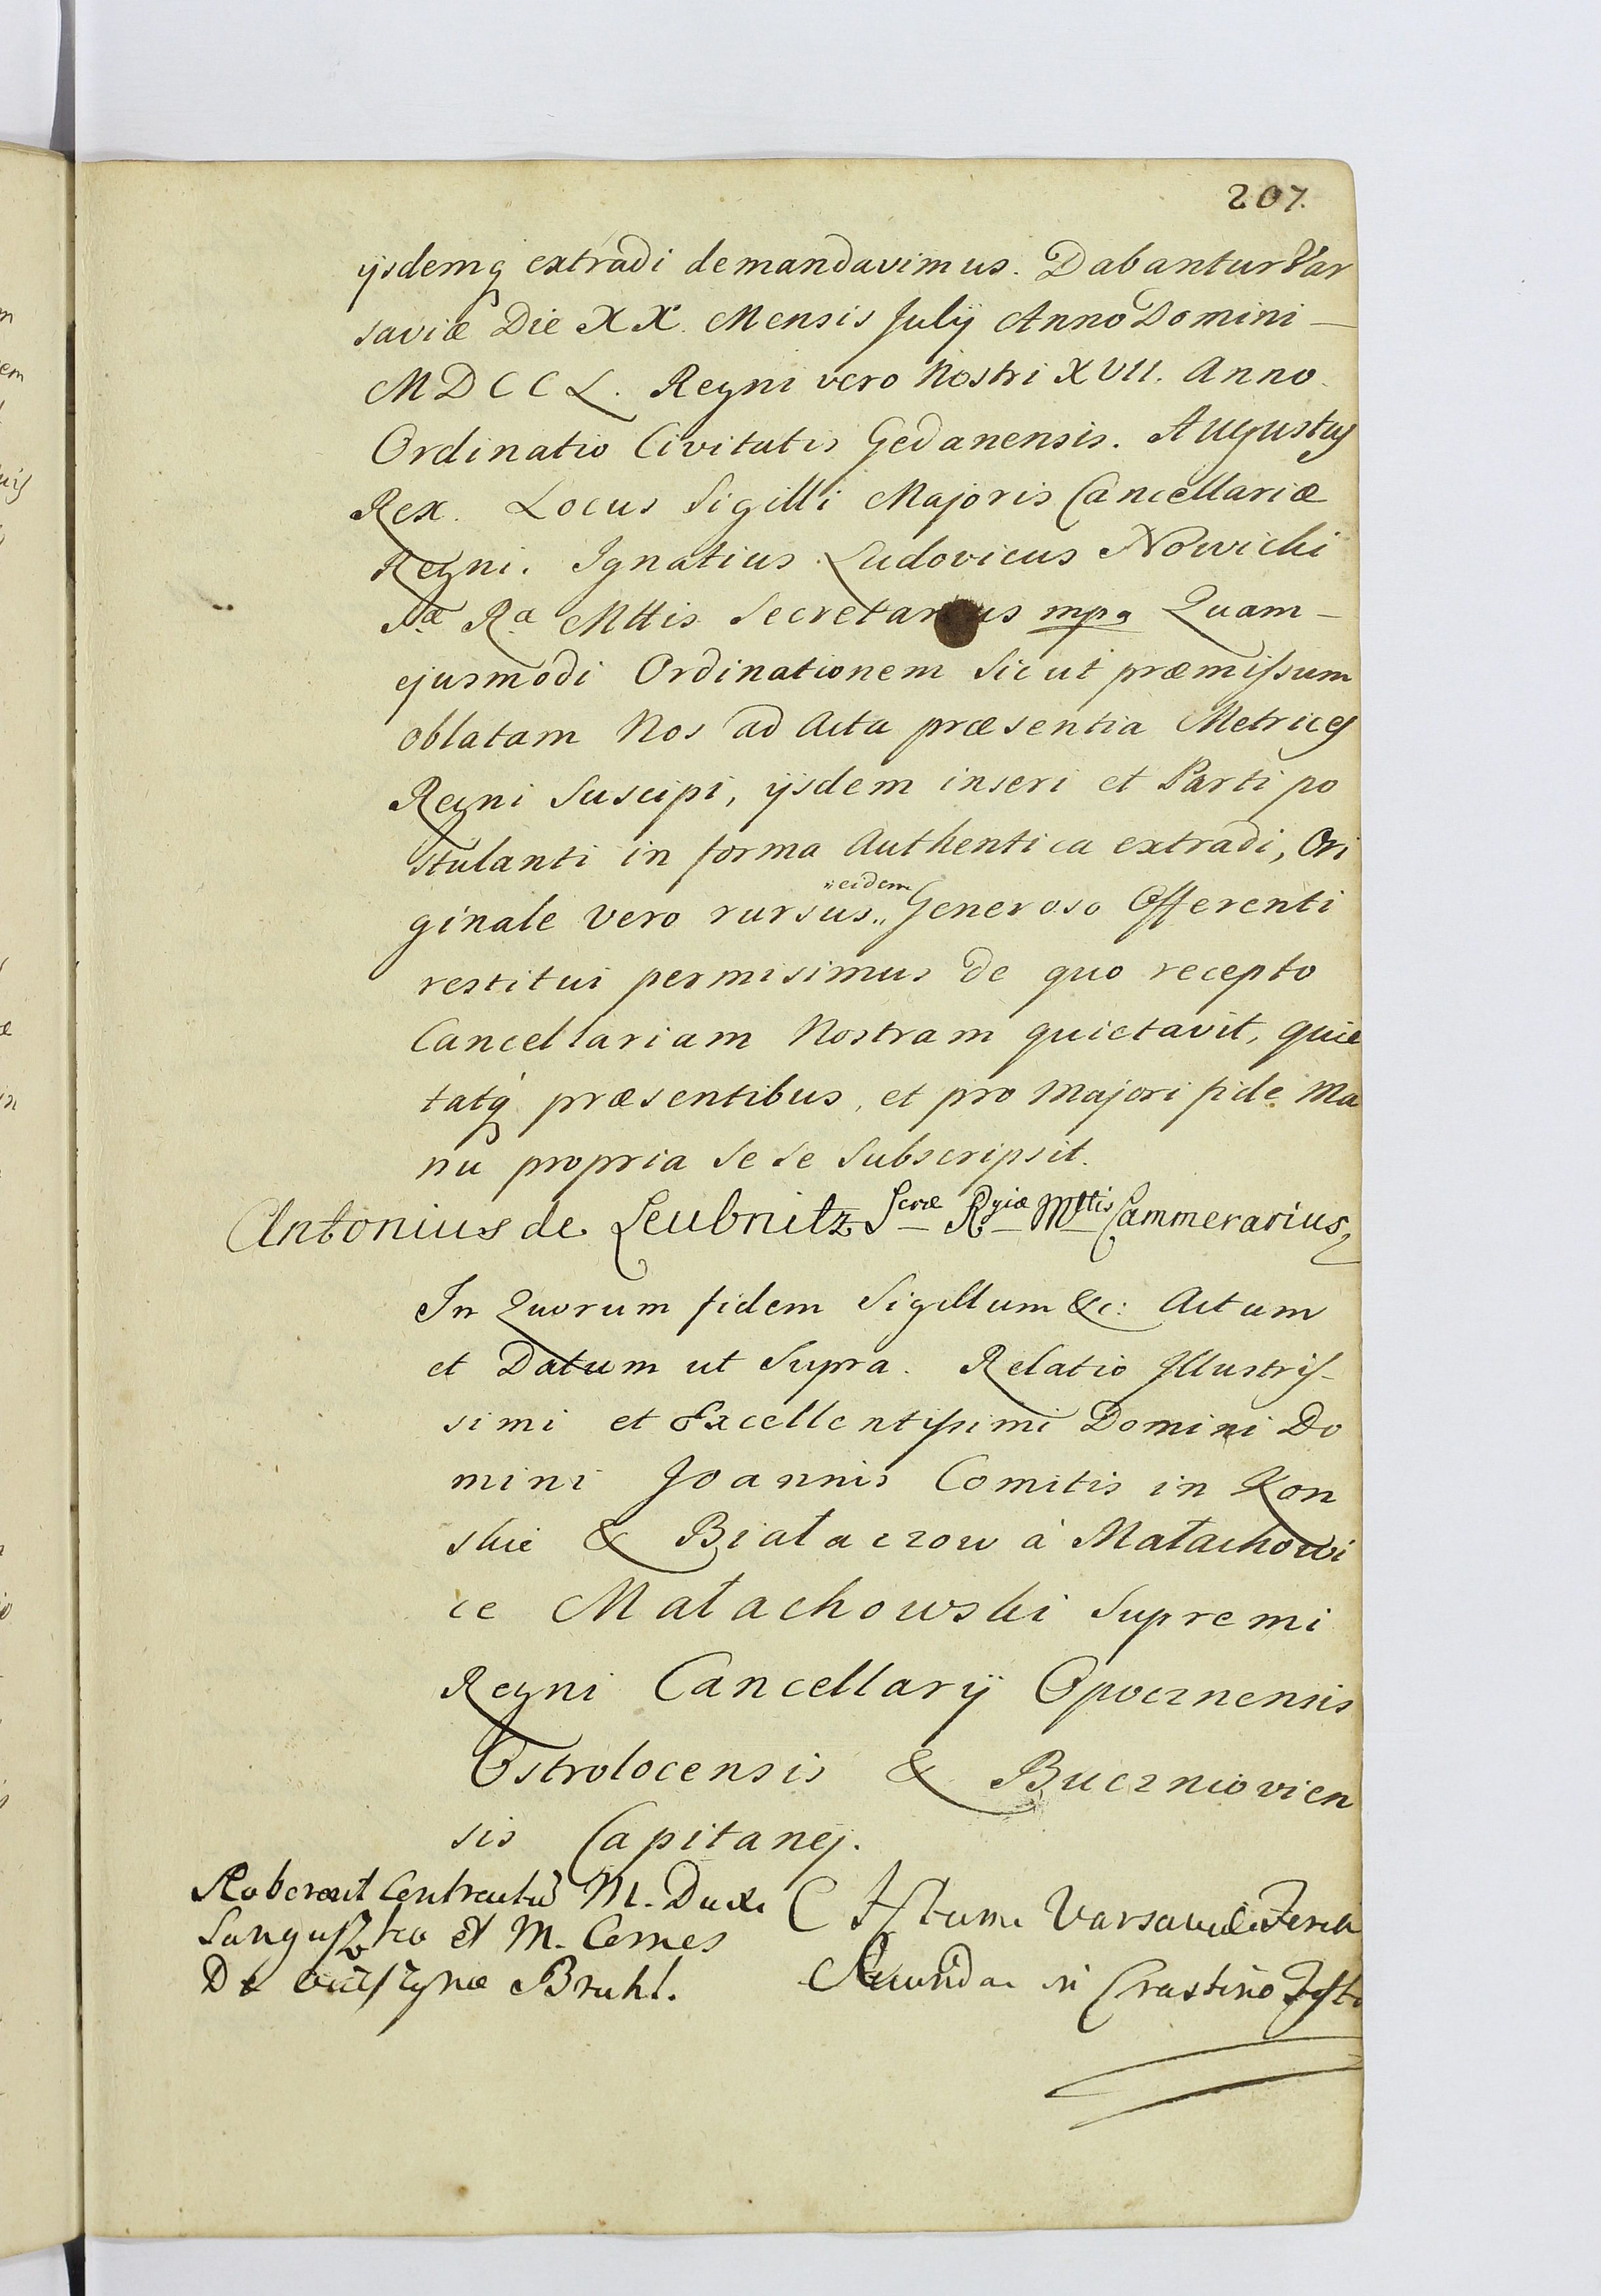 207.
ijsdemq extradi demandavimus. Dabantur Var
saviæ Die XX. Mensis Julij Anno Domini —
MDCCL. Regni vero Nostri XVII. Anno.
Ordinatio Civitatis Gedanensis. Augustus
Rex. Locus Sigilli Majoris Cancellariæ
Regni. Ignatius Ludovicus Nowicki
Sæ Ræ Mttis Secretarius mpa Quam —
ejusmodi Ordinationem sicut præmissum
oblatam Nos ad Acta præsentia Metrices
Regni Suscipi, ijsdem inseri et Parti po
stulanti in forma Authentica extradi, Ori
ginale vero rursus „eidem Generoso Offerenti
restitui permisimus de quo recepto
Cancellariam Nostram quietavit, quie
tatq præsentibus, et pro majori fide Ma
nu propria se se subscripsit.
Antonius de Leubnitz Scræ Rgiæ Mttis Cammerarius
In Quorum fidem Sigillum &c: Actum
et Datum ut Supra. Relatio Illustris-
simi et Excellentissimi Domini Do
mini Joannis Comitis in Kon
skie & Białaczow à Małachowi
ce Małachowski Supremi
Regni Cancellarij Opocznensis
Ostrolocensis & Buczniovien
sis Capitanej.
Roborant Contractum M. Dux
et M. Comes
De Bruhl.
Actum Varsaviæ Feria
Secunda in Crastino Festi